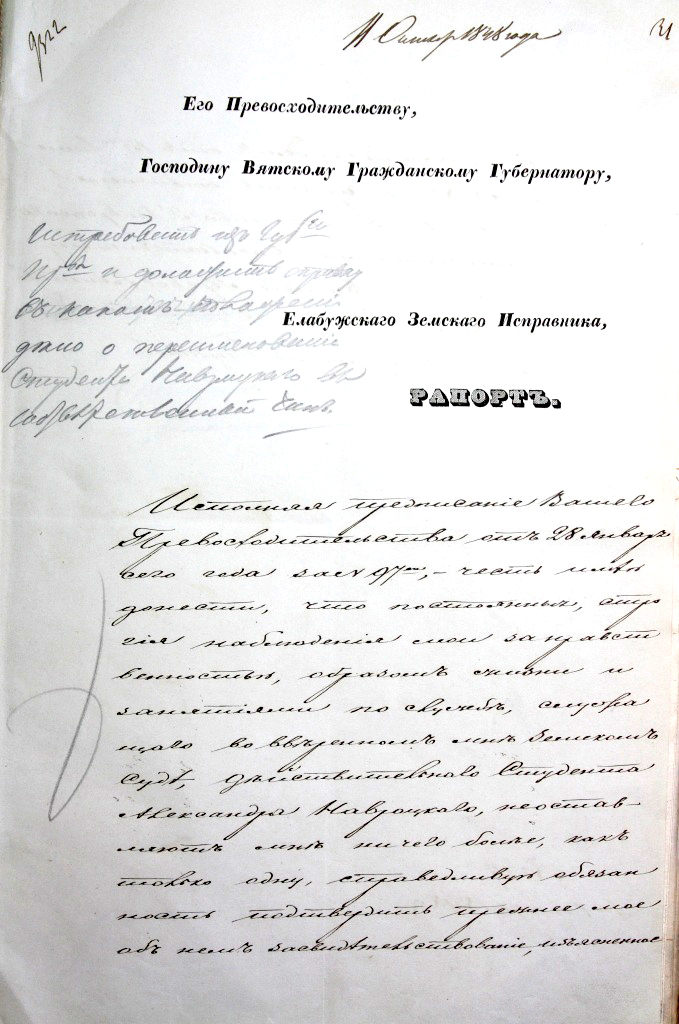 9322
11 Октяб 1848 года
31
Его Превосходительству,
Господину Вятскому Гражданскому Губернатору,
Истребовать изъ Губ
и доложить справку
въ какомъ
дѣло о переименовании
Студента Навроцкаго въ
соотвѣтственный чинъ.
Елабужскаго Земскаго Исправника,
РАПОРТЪ.
Исполняя предписаніе Вашего
Превосходительства отъ 28 Январ
сего года за N 97м, – честь имѣю
донести, что постоянныя, стро
гія наблюденія мои за нравст
венностью, образомъ жизни и
занятіями по службѣ, служа
щаго во ввѣренномъ мнѣ Земскомъ
Судѣ, дѣйствительнаго Студента
Александра Навроцкаго, неостав-
ляютъ мнѣ ничего болѣе, какъ
только одну, справедливую обязан
ность подтвердить прежнее мое
объ немъ засвидѣтельствованіе, изъясненное